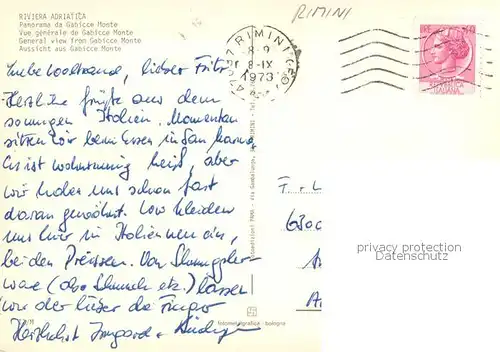 RIVIERA ADRIATICA
Panorama da Gabicce Monte
Vue générale de Gabicce Monte
General view from Gabicce Monte
Aussicht aus Gabicce Monte
RIMINI
47037 RIMINI
8-9
8-IX
1973
Liebe Waltraud, lieber Fritz
Herzliche Grüße aus dem
sonnigen Italien. Momentan
sitzen wir beim Essen in San Marino
Es ist wahnsinnig heiß, aber
wir haben uns schon fast
daran gewöhnt. Wir kleiden
uns hier in Italien neu ein,
bei den Preisen. Von Schmuggler-
ware (also Schmuck etc.) lassen
wir aber lieber die Finger
Herzlichst Irmgard + Rüdiger
fotometalgrafica - bologna
T. L
6300
privacy protection
Datenschutz